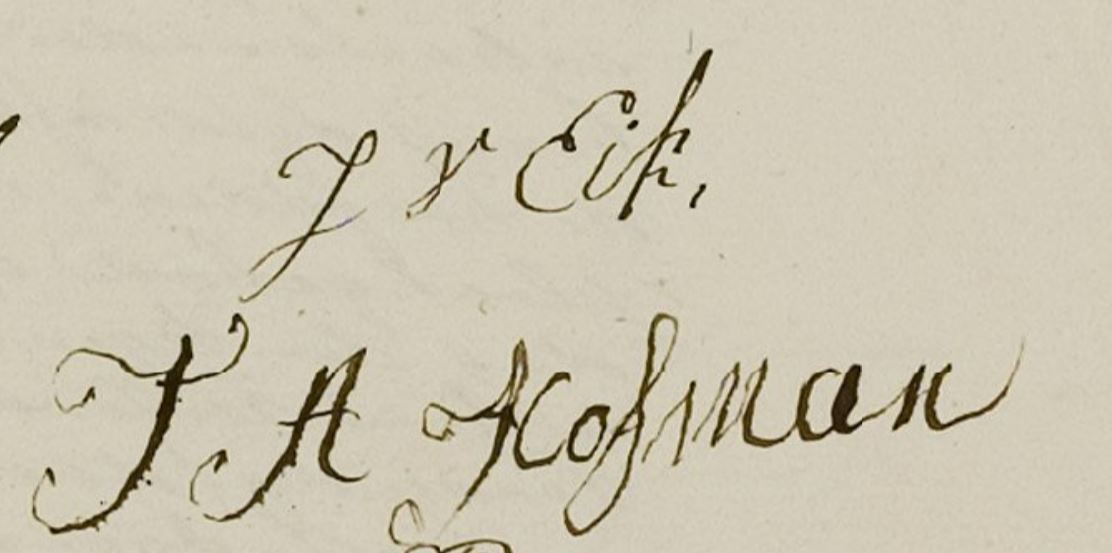 J v Eik.
J A Hofman